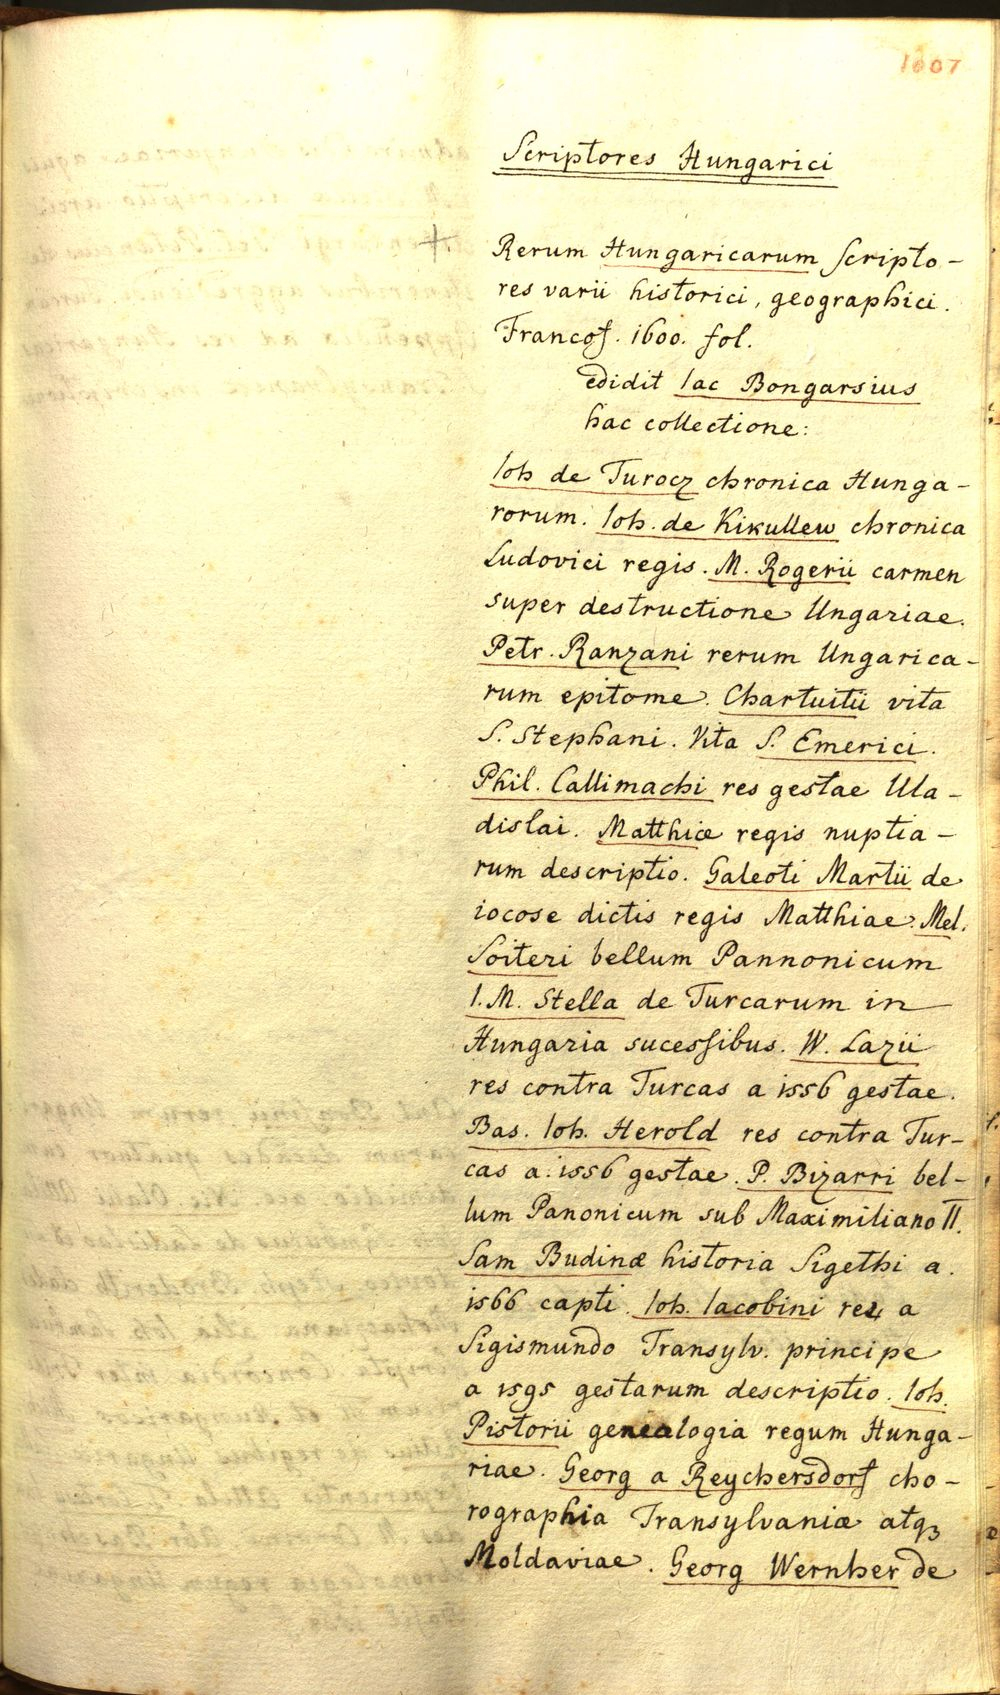 1607
Scriptores Hungarici
+ Rerum Hungaricarum scripto-
res varii historici, geographici.
Francof. 1600. fol.
edidit Iac Bongarsius
hac collectione:
Ioh de Turocz chronica Hunga-
rorum. Ioh. de Kikullew chronica
Ludovici regis. M. Rogerii carmen
super destructione Ungariae.
Petr. Ranzani rerum Ungarica-
rum epitome. Chartuitii vita
S. Stephani. Vita S. Emerici.
Phil. Callimachi res gestae Ula-
dislai. Matthiæ regis nuptia-
rum descriptio. Galeoti Martii de
iocose dictis regis Matthiae. Mel.
Soiteri bellum Pannonicum
I. M. Stella de Turcarum in
Hungaria sucessibus. W. Lazii
res contra Turcas a 1556 gestae.
Bas. Ioh. Herold res contra Tur-
cas a. 1556 gestae. P. Bizarri bel-
lum Panonicum sub Maximiliano II.
Sam Budinæ historia Sigethi a.
1566 capti. Ioh. Iacobini a
Sigismundo Transylv. principe
a 1595 gestarum descriptio. Ioh.
Pistorii genealogia regum Hunga-
riae. Georg a Reychersdorf cho-
rographia Transylvaniæ atqꝫ
Moldaviae. Georg Wernher de